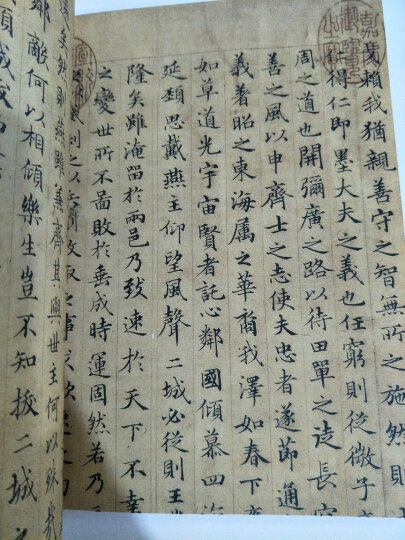 賴我猶親善守之智無所之施然則
得仁即墨大夫之義也任窮則從微子
周之道也開彌廣之路以待田單之徒長容
善之風以申齊士之志使夫忠者遂節通
義著昭之東海屬之華裔我澤如春下
如草道光宇宙賢者託心鄰國傾慕四海
延頸思戴燕主仰望風聲二城必從則王
隆矣雖淹留於兩邑乃致速於天下不幸
之變世所不啚敗於垂成時運固然若乃
劫之以兵則攻取之事求欲速
矣然則燕雖兼齊其與世主何以殊哉
鄰敵何以相傾樂生豈不知拔二城之